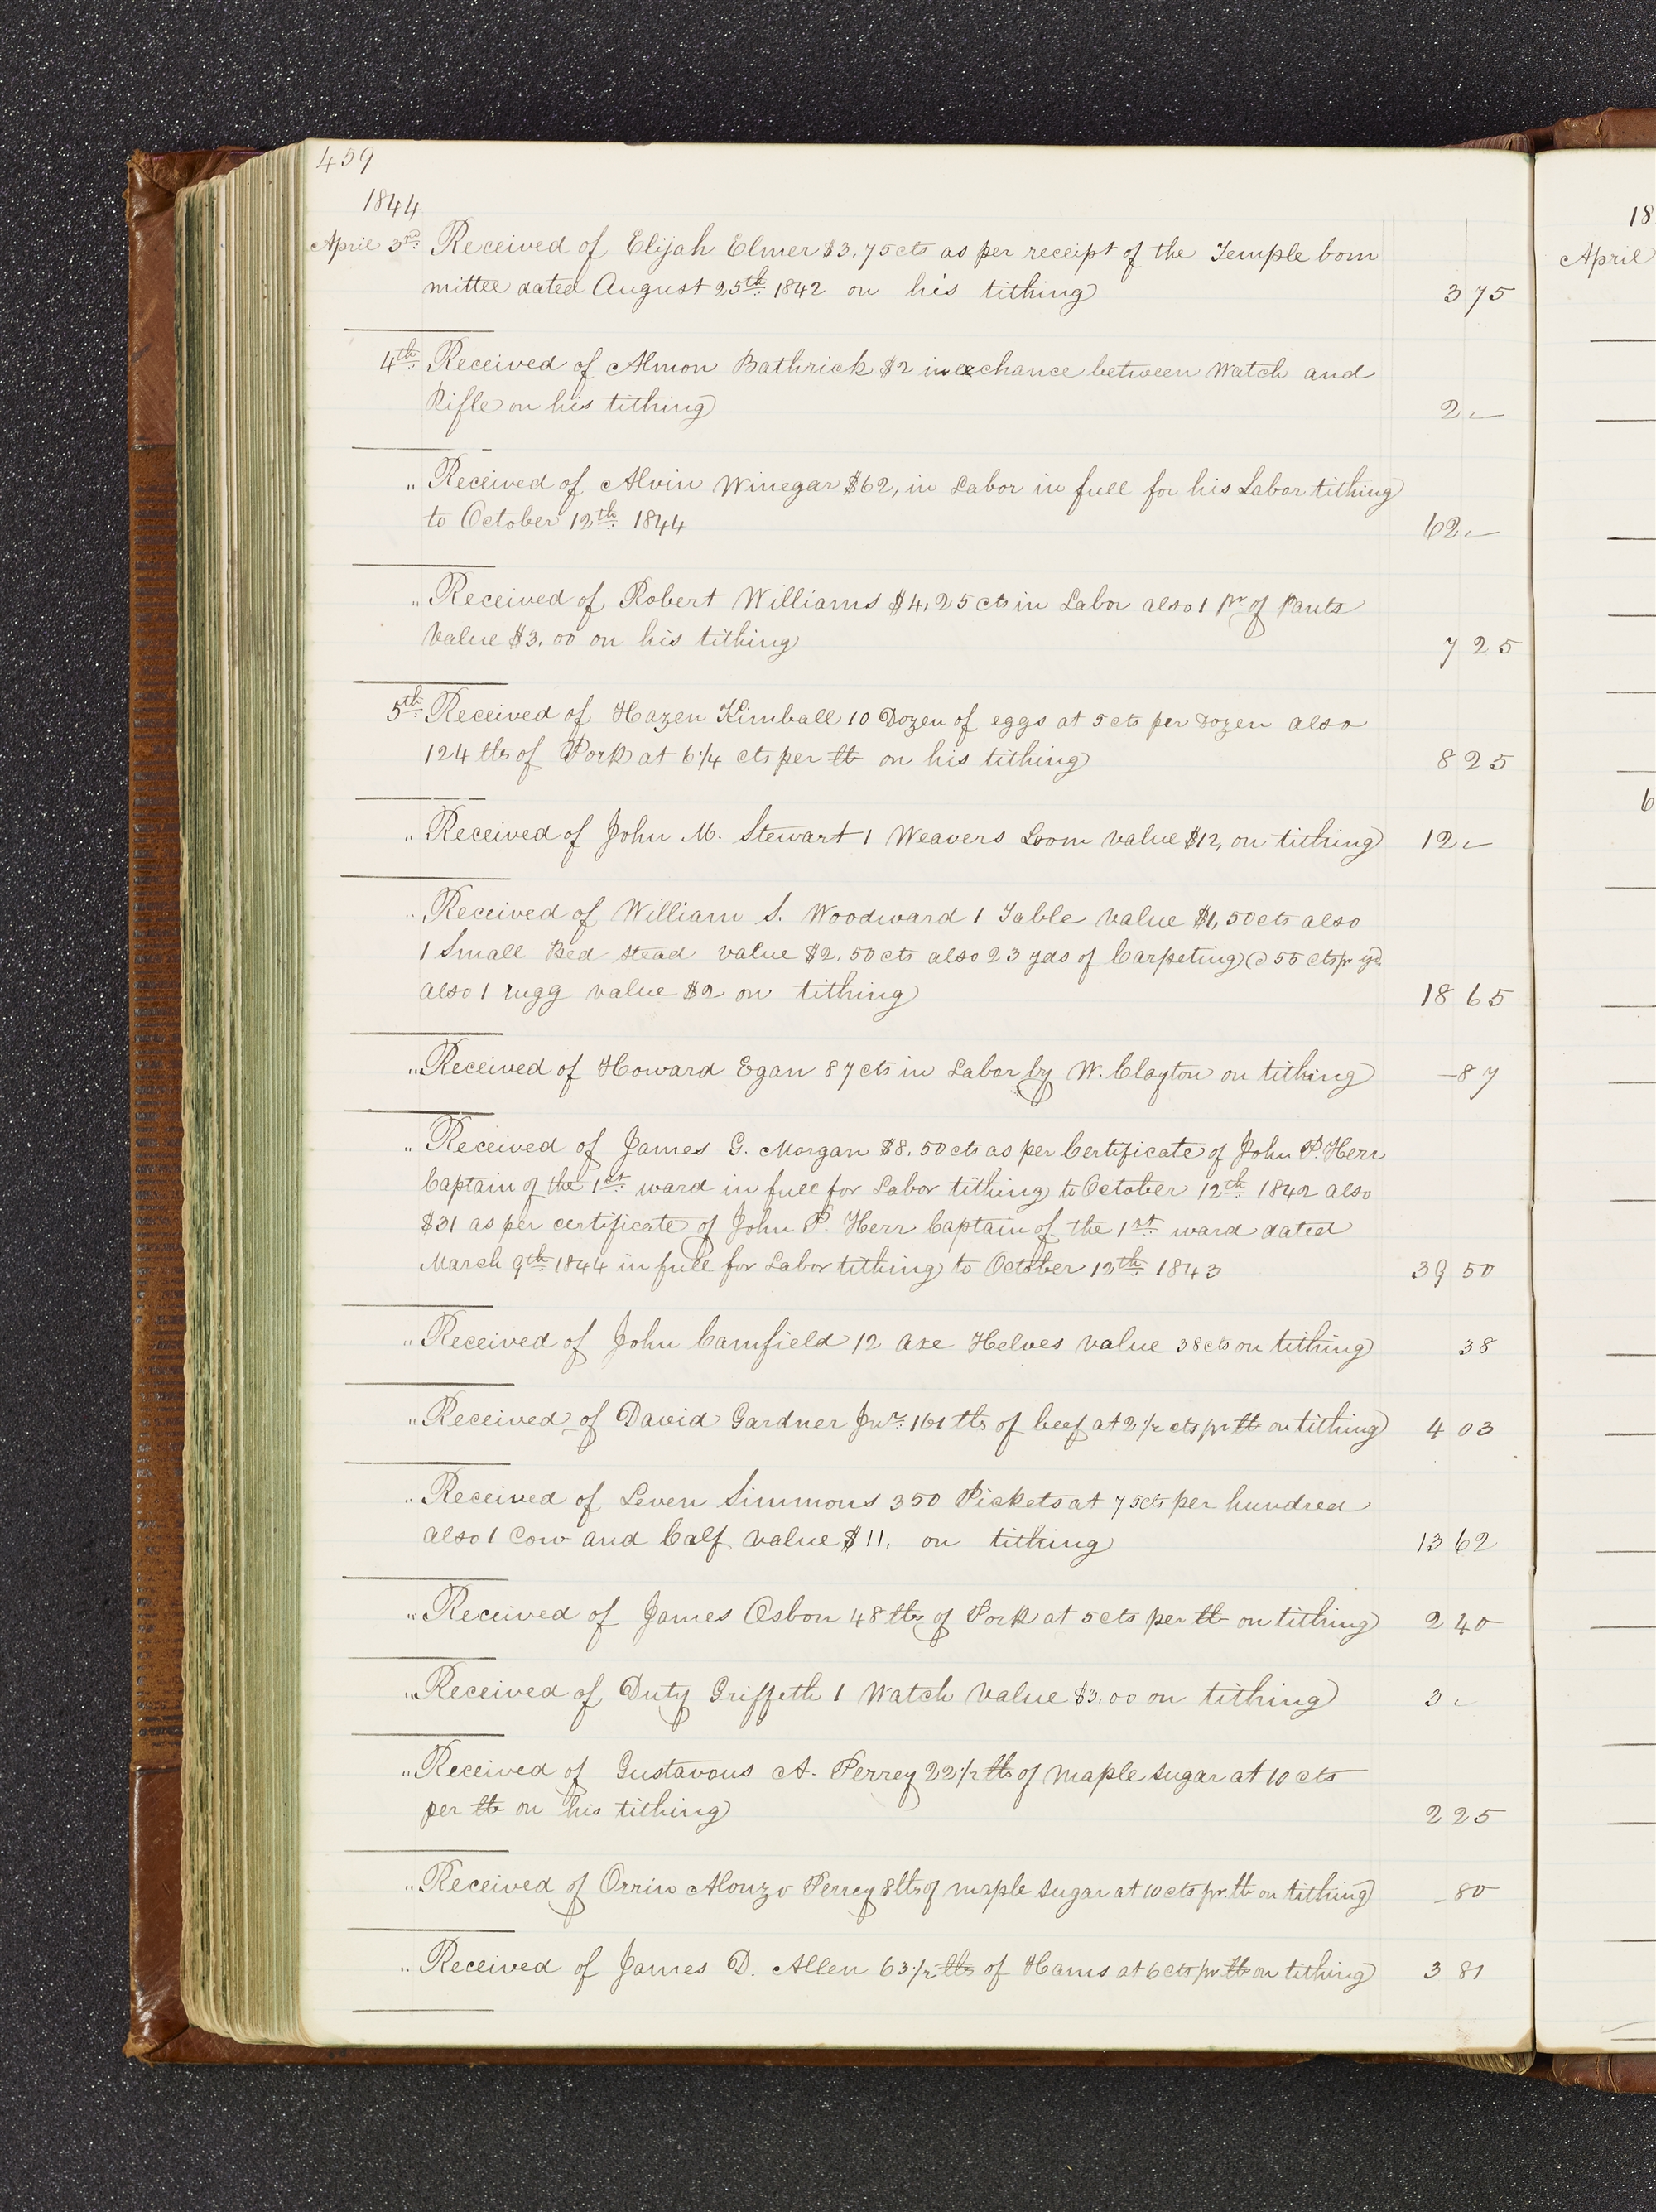 459
1844
April 3rd. Received of Elijah Elmer $3.75cts as per receipt of the Temple Com
mittee dated August 25th. 1842 on his tithing 3 75
4th. Received of Almon Bathrick $2 in exchance between Watch and
Rifle on his tithing 2 —
" Received of Alvin Winegar $62, in Labor in full for his Labor tithing
to October 12th. 1844 62 —
" Received of Robert Williams $4,25 cts in Labor also 1 pr of Pants
Value $3.00 on his tithing 7 25
5th. Received of Hazen Kimball 10 Dozen of eggs at 5 cts per Dozen also
124 lbs of Pork at 6 1/4 cts per lb on his tithing 8 25
" Received of John M. Stewart 1 Weavers Loom Value $12, on tithing 12 —
" Received of William S. Woodward 1 Table Value $1,50cts also
1 Small Bed stead value $2.50 cts also 23 yds of Carpeting @ 55 cts pr yd.
also 1 rugg value $2 on tithing 18 65
" Received of Howard Egan 87 cts in Labor by W. Clayton on tithing — 87
" Received of James G. Morgan $8.50 cts as per Certificate of John P. Herr
Captain of the 1st. ward in full for Labor tithing to October 12th. 1842 also
$31 as per certificate of John P. Herr Captain of the 1st. ward dated
March 9th. 1844 in full for Labor tithing to October 12th. 1843 39 50
" Received of John Camfield 12 axe Helves value 38 cts on tithing 38
" Received of David Gardner Jnr. 161 lbs of beef at 2 1/2 cts pr lb on tithing 4 03
" Received of Leven Simmons 350 Pickets at 75cts per hundred
also 1 Cow and Calf value $11. on tithing 13 62
" Received of James Osbon 48 lbs of Pork at 5 cts per lb on tithing 2 40
" Received of Duty Griffeth 1 Watch Value $3.00 on tithing 3 —
" Received of Gustavous A. Perrey 22 1/2 lbs of maple sugar at 10 cts
per lb on his tithing 2 25
" Received of Orrin Alonzo Perrey 8 lbs of maple sugar at 10 cts pr. lb on tithing — 80
" Received of James D. Allen 63 1/2 lbs of Hams at 6 cts pr. lb on tithing 3 81
18
April
6